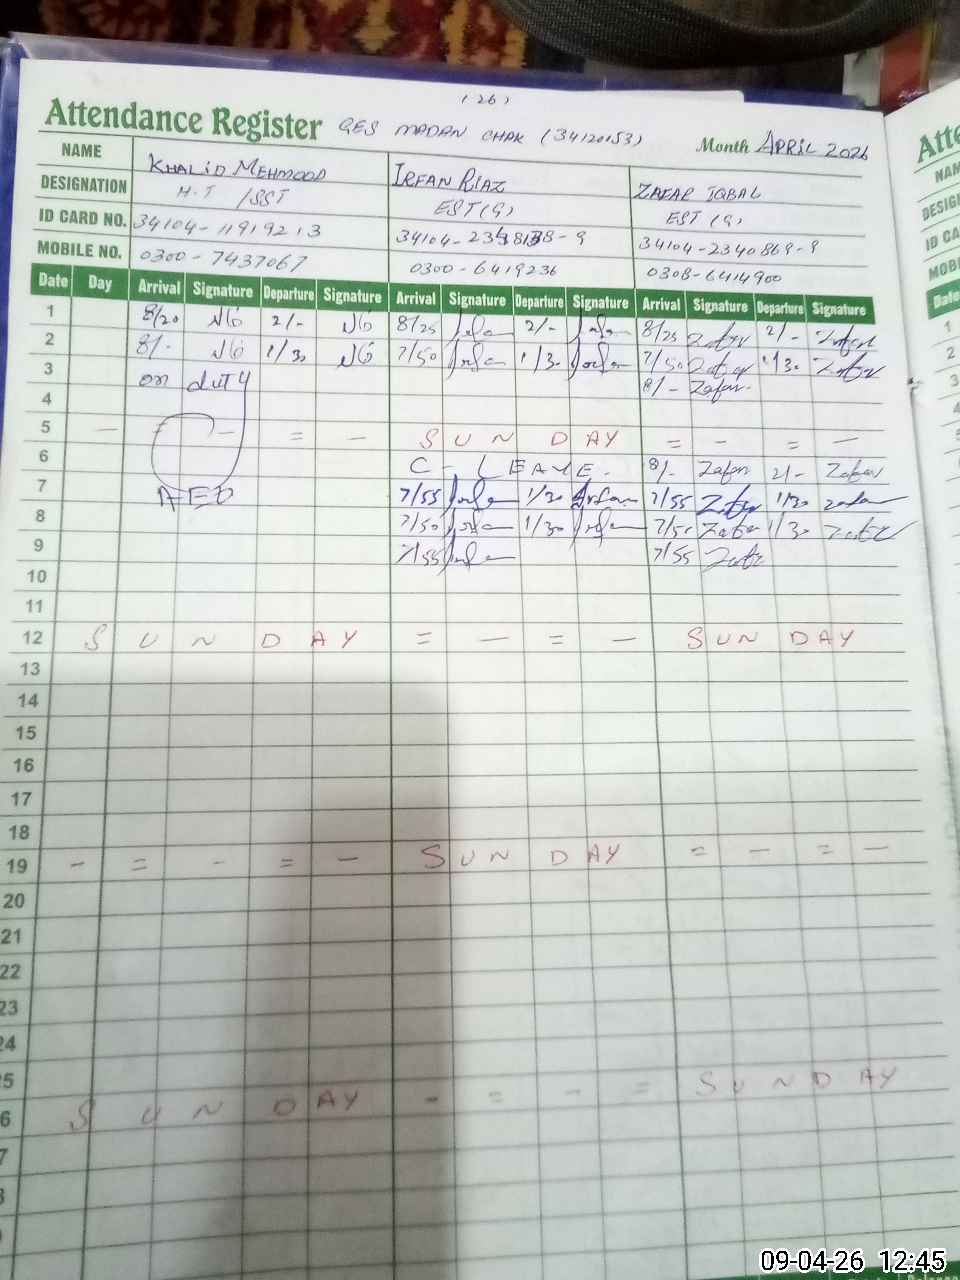 (26)
Attendance Register GES MADAN CHAK (34120153) Month APRIL 2026
NAME KHALID MEHMOOD IRFAN RIAZ ZAFAR IQBAL
DESIGNATION H.T /SST EST(G) EST(G)
ID CARD NO. 34104-11919213 34104-2340869-9
MOBILE NO. 0300-7437067 0300-6419236 0308-6414900
Date Day Arrival Signature Departure Signature Arrival Signature Departure Signature Arrival Signature Departure Signature
1 8/20 2/- 8/25 2/- 8/25 Zafar 2/- Zafar
2 8/- 1/30 7/50 Irfan 1/30 Irfan 7/50 Zafar 1/30 Zafar
3 on duty 8/- Zafar
4
5 - - = - SUNDAY = - = -
6 C-LEAVE. 8/- Zafar 2/- Zafar
7 AEO 7/55 Irfan 1/30 Irfan 7/55 Zafar 1/30 Zafar
8 7/50 Irfan 1/30 Irfan 7/50 Zafar 1/30 Zafar
9 7/55 Irfan 7/55 Zafar
10
11
12 SUNDAY = - = - SUNDAY
13
14
15
16
17
18
19 - = - = - SUNDAY = - = -
20
21
22
23
24
5 SUNDAY
6 SUNDAY - = - =
7
8
Atte
NAM
DESIG
ID CA
MOBI
Date
1
2
3
4
5
6
7
8
9
10
11
12
13
14
09-04-26 12:45